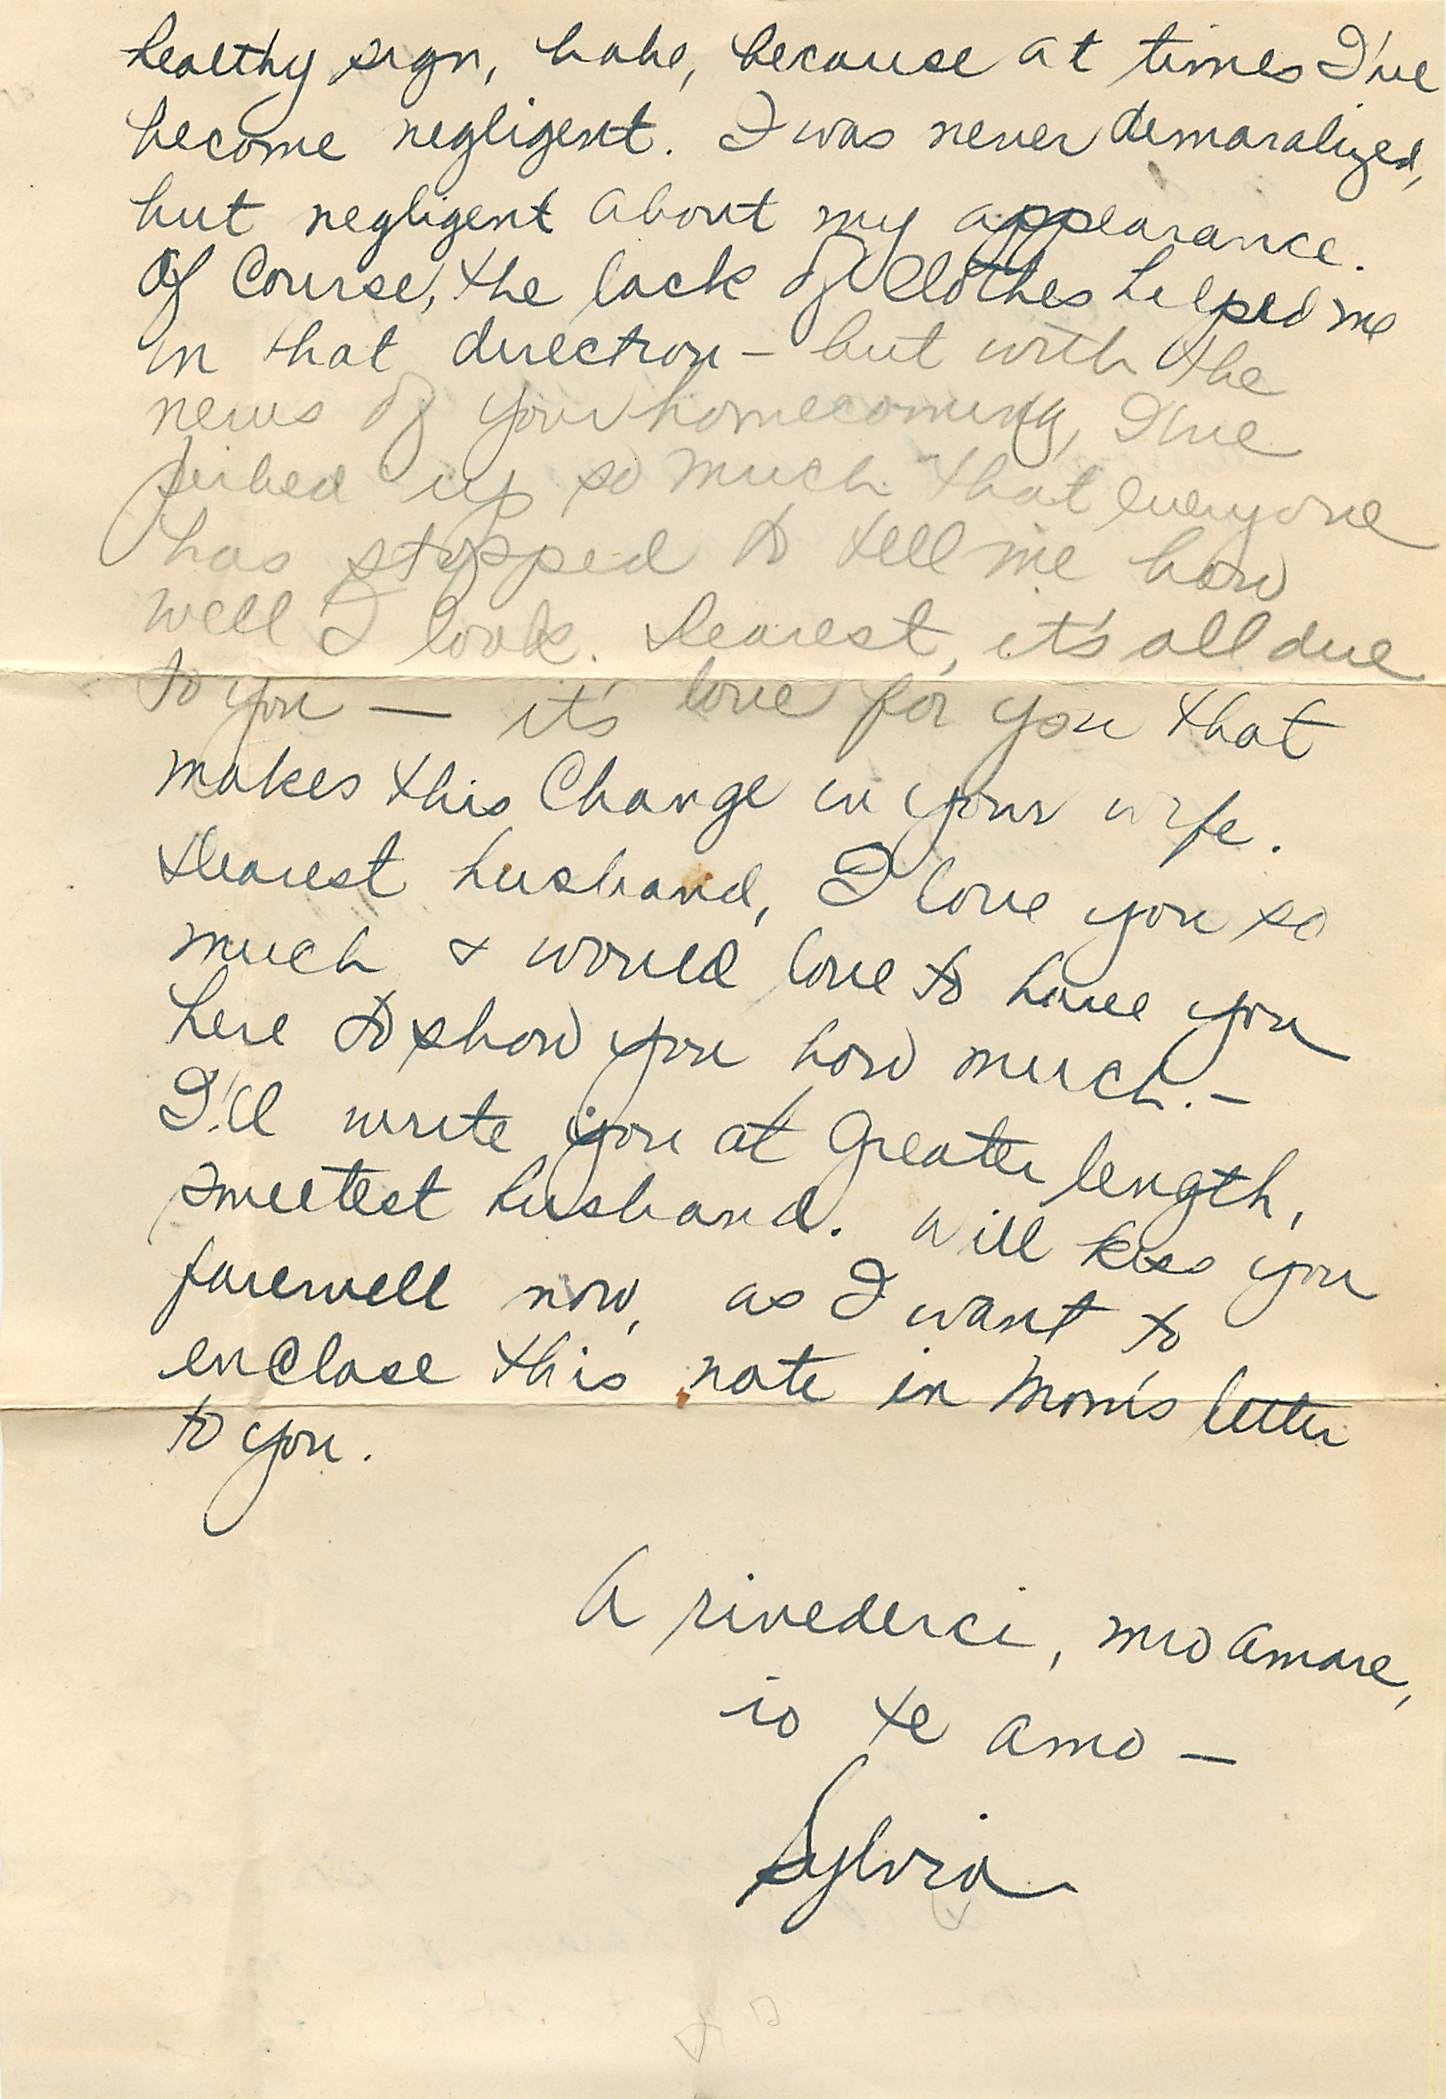 healthy sign, babe, because at times I've
become negligent. I was never demoralized,
but negligent about my appearance.
Of course, the lack of clothes helped me
in that direction – but with the
news of your homecoming, I've
perked up so much that everyone
has stopped to tell me how
well I look. Dearest, it's all due
to you — it's love for you that
makes this change in your wife.
Dearest husband, I love you so
much & would love to have you
here to show you how much. –
I'll write you at greater length,
sweetest husband. Will kiss you
farewell now, as I want to
enclose this note in Mom's letter
to you.
A rivederci, mio amore,
io te amo —
Sylvia